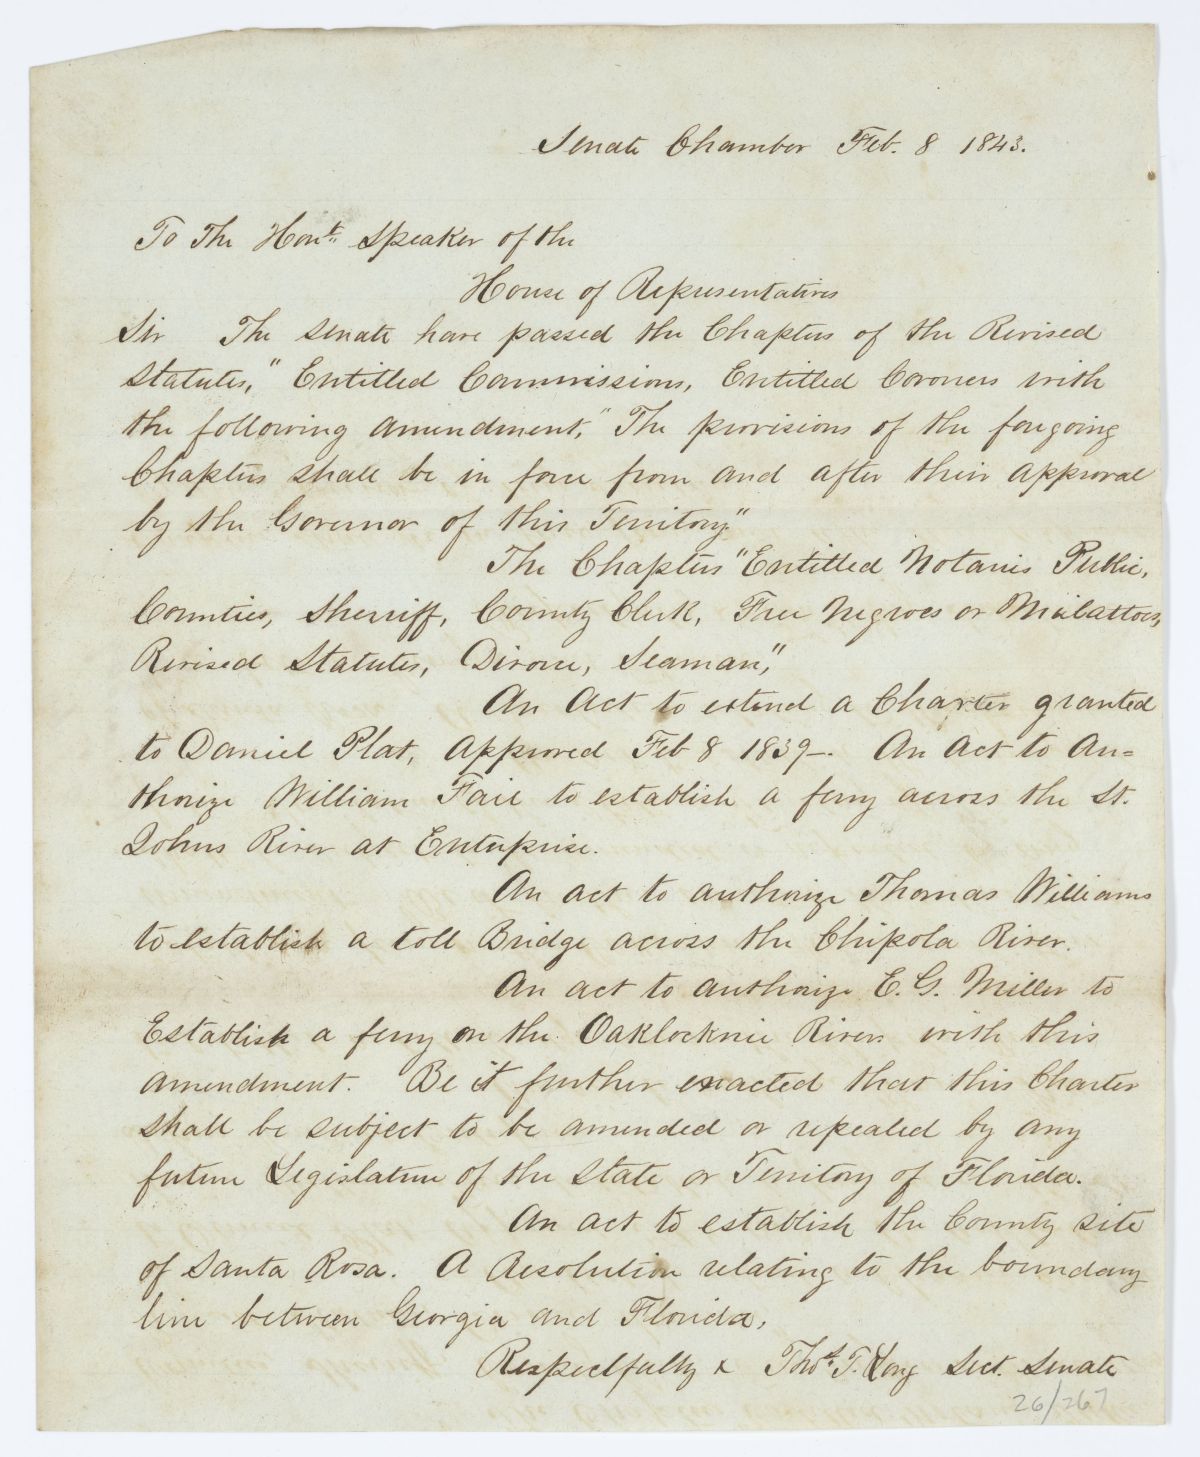 Senate Chamber Feb. 8 1843.
To The Hon. Speaker of the
House of Representatives
Sir The Senate have passed the Chapters of the Revised
Statutes, "Entitled Commissions, Entitled Coroners with
the following amendment," The provisions of the foregoing
Chapters shall be in force from and after their approval
by the Governor of this Territory."
The Chapters "Entitled Notaries Public,
Counties, Sherriff, County Clerk, Free Negroes or Mulattoes,
Revised Statutes, Divorce, Seaman",
An Act to extend a Charter granted
to Daniel Plat, Approved Feb 8 1839—. An Act to Au=
thorize William Fail to establish a ferry across the St.
Johns River at Enterprise.
An act to authorize Thomas Williams
to establish a toll Bridge across the Chipola River.
An act to authorize E. G. Miller to
Establish a ferry on the Oaklocknie River with this
amendment. Be it further enacted that this Charter
shall be subject to be amended or repealed by any
future Legislature of the State or Territory of Florida.
An act to establish the County site
of Santa Rosa. A Resolution relating to the boundary
line between Georgia and Florida,
Respectfully & Thos. T. Long Sect. Senate
26/267